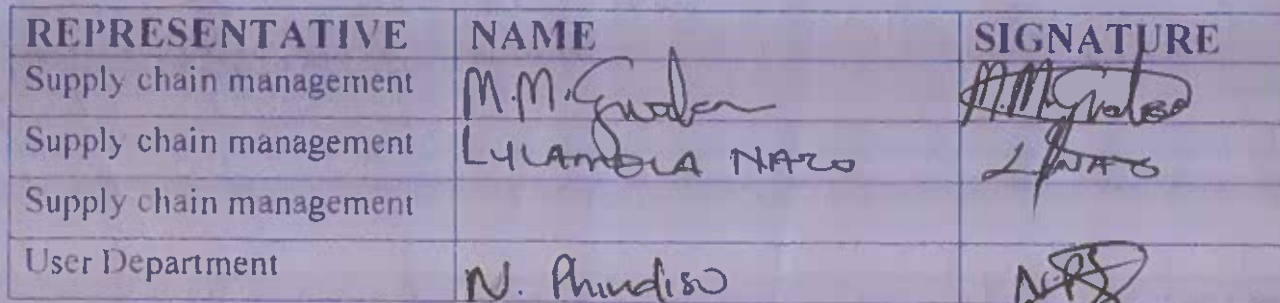 REPRESENTATIVE NAME SIGNATURE
Supply chain management M.M.
Supply chain management NAZO
Supply chain management
User Department N. Phindiso